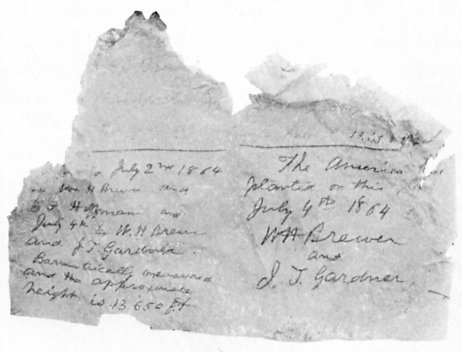 July 2nd 1864
W H Brewer and
Hoffmann and
July 4th by W. H. Brewer
and J. T. Gardner.
Barometrically measured
and the approximate
height is 13,650 ft
The American
planted on this
July 4th 1864
W H Brewer
and
J. T. Gardner.